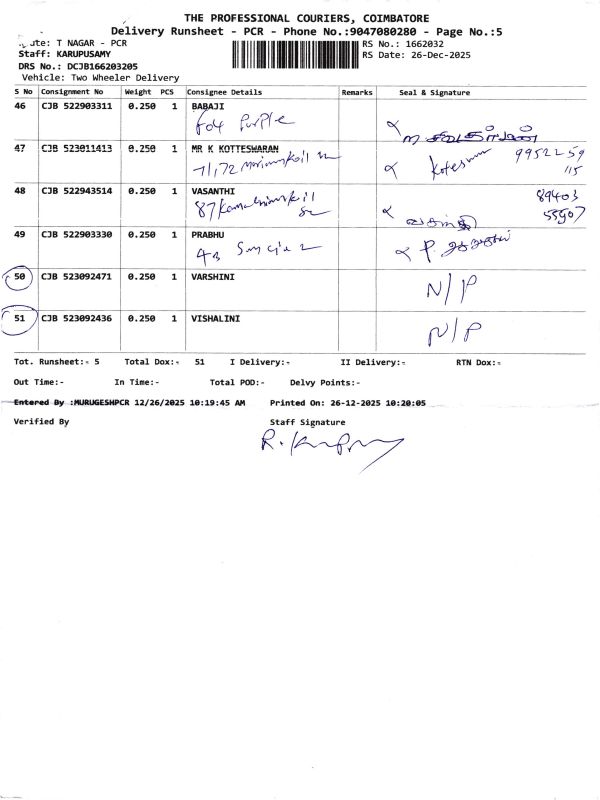 THE PROFESSIONAL COURIERS, COIMBATORE
Delivery Runsheet - PCR - Phone No.:9047080280 - Page No.:5
ute: T NAGAR - PCR RS No.: 1662032
Staff: KARUPUSAMY RS Date: 26-Dec-2025
DRS No.: DCJB166203205
Vehicle: Two Wheeler Delivery
S No Consignment No Weight PCS Consignee Details Remarks Seal & Signature
46 CJB 522903311 0.250 1 BABAJI
Purple
47 CJB 523011413 0.250 1 MR K KOTTESWARAN
71,72 9952259
115
48 CJB 522943514 0.250 1 VASANTHI 89403
87 55907
49 CJB 522903330 0.250 1 PRABHU
50 CJB 523092471 0.250 1 VARSHINI
N/P
51 CJB 523092436 0.250 1 VISHALINI
N/P
Tot. Runsheet:- 5 Total Dox:- 51 I Delivery:- II Delivery:- RTN Dox:-
Out Time:- In Time:- Total POD:- Delvy Points:-
Entered By :MURUGESHPCR 12/26/2025 10:19:45 AM Printed On: 26-12-2025 10:20:05
Verified By Staff Signature